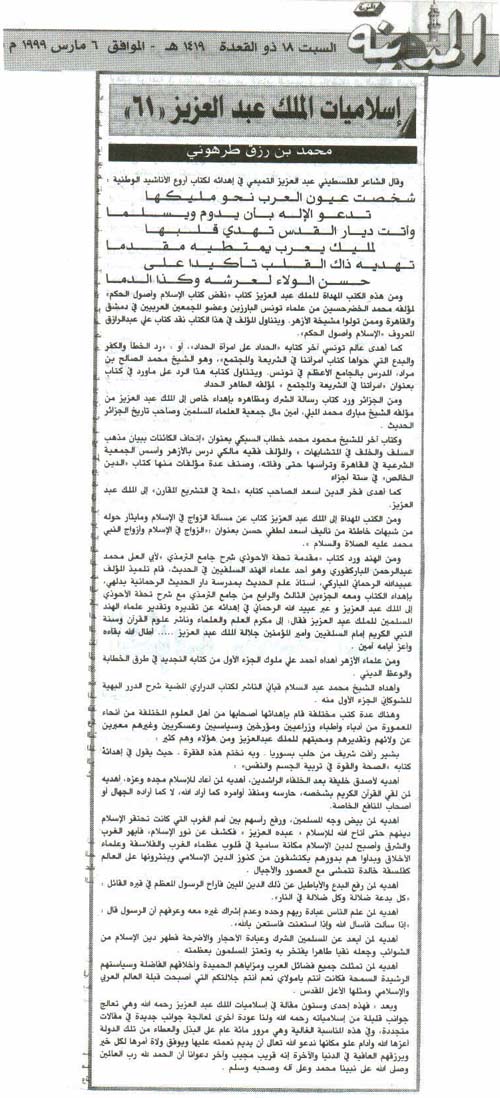 المدينة
السبت ١٨ ذو القعدة ١٤١٩ هـ - الموافق ٦ مارس ١٩٩٩ م
إسلاميات الملك عبد العزيز «٦١»
محمد بن رزق طرهوني
وقال الشاعر الفلسطيني عبد العزيز التميمي في إهدائه لكتاب أروع الأناشيد الوطنية :
شخصت عيون العرب نحو مليكها
تدعو الإله بأن يدوم ويسلما
وأتت ديار القدس تهدي قلبها
لمليك يعرب يمتطيه مقدما
تهديه ذاك القلب تأكيدا على
حسن الولاء لعرشه وكذا الدما
ومن هذه الكتب المهداة للملك عبد العزيز كتاب «نقض كتاب الإسلام وأصول الحكم»
لمؤلفه محمد الخضرحسين من علماء تونس البارزين وعضو المجمعين العربيين في دمشق
والقاهرة وممن تولوا مشيخة الأزهر، ويتناول المؤلف في هذا الكتاب نقد كتاب علي عبدالرازق
المعروف «الإسلام وأصول الحكم».
كما أهدى عالم تونسي آخر كتابه «الحداد على امرأة الحداد»، أو ، «رد الخطأ والكفر
والبدع التي حواها كتاب امرأتنا في الشريعة والمجتمع»، وهو الشيخ محمد الصالح بن
مراد، المدرس بالجامع الأعظم في تونس، ويتناول كتابه هذا الرد على ماورد في كتاب
بعنوان «امرأتنا في الشريعة والمجتمع » لمؤلفه الطاهر الحداد
ومن الجزائر ورد كتاب رسالة الشرك ومظاهره بإهداء خاص إلى الملك عبد العزيز من
مؤلفه الشيخ مبارك محمد الميلي، أمين مال جمعية العلماء المسلمين وصاحب تاريخ الجزائر
الحديث .
وكتاب آخر للشيخ محمود محمد خطاب السبكي بعنوان «إتحاف الكائنات ببيان مذهب
السلف والخلف في المتشابهات » والمؤلف فقيه مالكي درس بالأزهر وأسس الجمعية
الشرعية في القاهرة وترأسها حتى وفاته، وصنف عدة مؤلفات منها كتاب «الدين
الخالص» في ستة أجزاء
كما أهدى فخر الدين أسعد الصاحب كتابه «لمحة في التشريع المقارن» إلى الملك عبد
العزيز.
ومن الكتب المهداة إلى الملك عبد العزيز كتاب عن مسألة الزواج في الإسلام ومايثار حوله
من شبهات خاطئة من تأليف أسعد لطفي حسن بعنوان :«الزواج في الإسلام وأزواج النبي
محمد عليه الصلاة والسلام ».
ومن الهند ورد كتاب «مقدمة تحفة الأحوذي شرح جامع الترمذي » لأبي العل محمد
عبدالرحمن المباركفوري وهو أحد علماء الهند السلفيين في الحديث، قام تلميذ المؤلف
عبيدالله الرحماني المباركي، أستاذ علم الحديث بمدرسة دار الحديث الرحمانية بدلهي،
بإهداء الكتاب ومعه الجزءين الثالث والرابع من جامع الترمذي مع شرح تحفة الأحوذي
إلى الملك عبد العزيز و عبر عبيد الله الرحماني في إهدائه عن تقديره وتقدير علماء الهند
المسلمين للملك عبد العزيز فقال: إلى مكرم العلم والعلماء وناشر علوم القرآن وسنة
النبي الكريم إمام السلفيين وأمير المؤمنين جلالة الملك عبد العزيز ..... أطال الله بقاءه
وأعز أيامه آمين .
ومن علماء الأزهر أهداه أحمد علي ملوك الجزء الأول من كتابه التجديد في طرق الخطابة
والوعظ الديني .
وأهداه الشيخ محمد عبد السلام قباني الناشر لكتاب الدراري المضية شرح الدرر البهية
للشوكاني الجزء الأول منه .
وهناك عدة كتب مختلفة قام بإهدائها أصحابها من أهل العلوم المختلفة من أنحاء
المعمورة من أدباء وأطباء وزراعيين ومؤرخين وسياسيين وعسكريين وغيرهم معبرين
عن ولائهم وتقديرهم ومحبتهم للملك عبدالعزيز ومن هؤلاء وهم كثير :
بشير رأفت شريف من حلب بسوريا . وبه نختم هذه الفقرة ، حيث يقول في إهدائه
كتابه «الصحة والقوة في تربية الجسم والنفس» .
أهديه لأصدق خليفة بعد الخلفاء الراشدين، أهديه لمن أعاد للإسلام مجده وعزه، أهديه
لمن لقي القرآن الكريم بشخصه، حارسه ومنفذ أوامره كما أراد الله، لا كما أراده الجهال أو
أصحاب المنافع الخاصة.
أهديه لمن بيض وجه المسلمين، ورفع رأسهم بين أمم الغرب التي كانت تحتقر الإسلام
دينهم حتى أتاح الله للإسلام ، عبده العزيز ، فكشف عن نور الإسلام، فأبهر الغرب
والشرق وأصبح لدين الإسلام مكانة سامية في قلوب عظماء الغرب والفلاسفة وعلماء
الأخلاق وبدأوا هم بدورهم يكتشفون من كنوز الدين الإسلامي وينثرونها على العالم
كفلسفة خالدة تتمشى مع العصور والأجيال .
أهديه لمن رفع البدع والأباطيل عن ذلك الدين المبين فأراح الرسول المعظم في قبره القائل ،
«كل بدعة ضلالة وكل ضلالة في النار».
أهديه لمن علم الناس عبادة ربهم وحده وعدم إشراك غيره معه وعرفهم أن الرسول قال ،
«إذا سألت فاسأل الله وإذا استعنت فاستعن بالله».
أهديه لمن أبعد عن المسلمين الشرك وعبادة الأحجار والأضرحة فطهر دين الإسلام من
الشوائب وجعله نقيا طاهرا يفتخر به وتعتز المسلمون بعظمته .
أهديه لمن تمثلت جميع فضائل العرب ومزاياهم الحميدة وأخلاقهم الفاضلة وسياستهم
الرشيدة السمحة فكانت أنتم يامولاي نعم أنتم جلالتكم التي أصبحت قبلة العالم العربي
والإسلامي ومثلها الأعلى المقدس .
وبعد ، فهذه إحدى وستون مقالة في إسلاميات الملك عبد العزيز رحمه الله وهي تعالج
جوانب قليلة من إسلامياته رحمه الله ولنا عودة أخرى لمعالجة جوانب جديدة في مقالات
متجددة، وفي هذه المناسبة الغالية وهي مرور مائة عام على البذل والعطاء من تلك الدولة
أعزها الله وأدام علو مكانها ندعو الله تعالى أن يديم نعمته عليها ويوفق ولاة أمرها لكل خير
ويرزقهم العافية في الدنيا والآخرة إنه قريب مجيب وآخر دعوانا أن الحمد لله رب العالمين
وصل الله على نبينا محمد وعلى آله وصحبه وسلم .